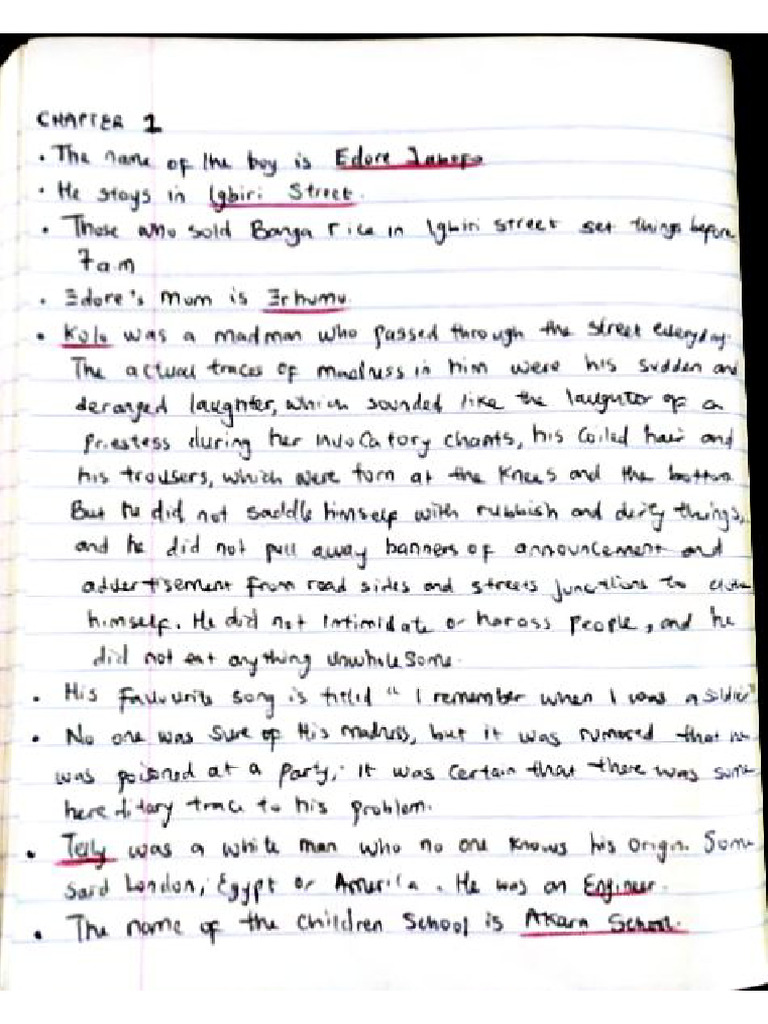 CHAPTER 1
• The name of the boy is Edore
• He stays in Igbiri Street.
• Those who sold Banga rice in Igbiri street set things before
7am
• Edore's mum is Erhumu
• Kolo was a madman who passed through the street everyday.
The actual traces of madness in him were his sudden and
deranged laughter, which sounded like the laughter of a
priestess during her invocatory chants, his coiled hair and
his trousers, which were torn at the knees and the bottom
But he did not saddle himself with rubbish and dirty things,
and he did not pull away banners of announcement and
advertisement from road sides and streets junctions to
himself. He did not intimidate or harass people, and he
did not eat anything unwholesome.
• His favourite song is titled "I remember when I was a soldier"
• No one was sure of His madness, but it was rumored that he
was poisoned at a party, it was certain that there was some
hereditary trace to his problem.
• was a white man who no one knows his origin. Some
said London, Egypt or America. He was an Engineer.
• The name of the children School is Akara School.